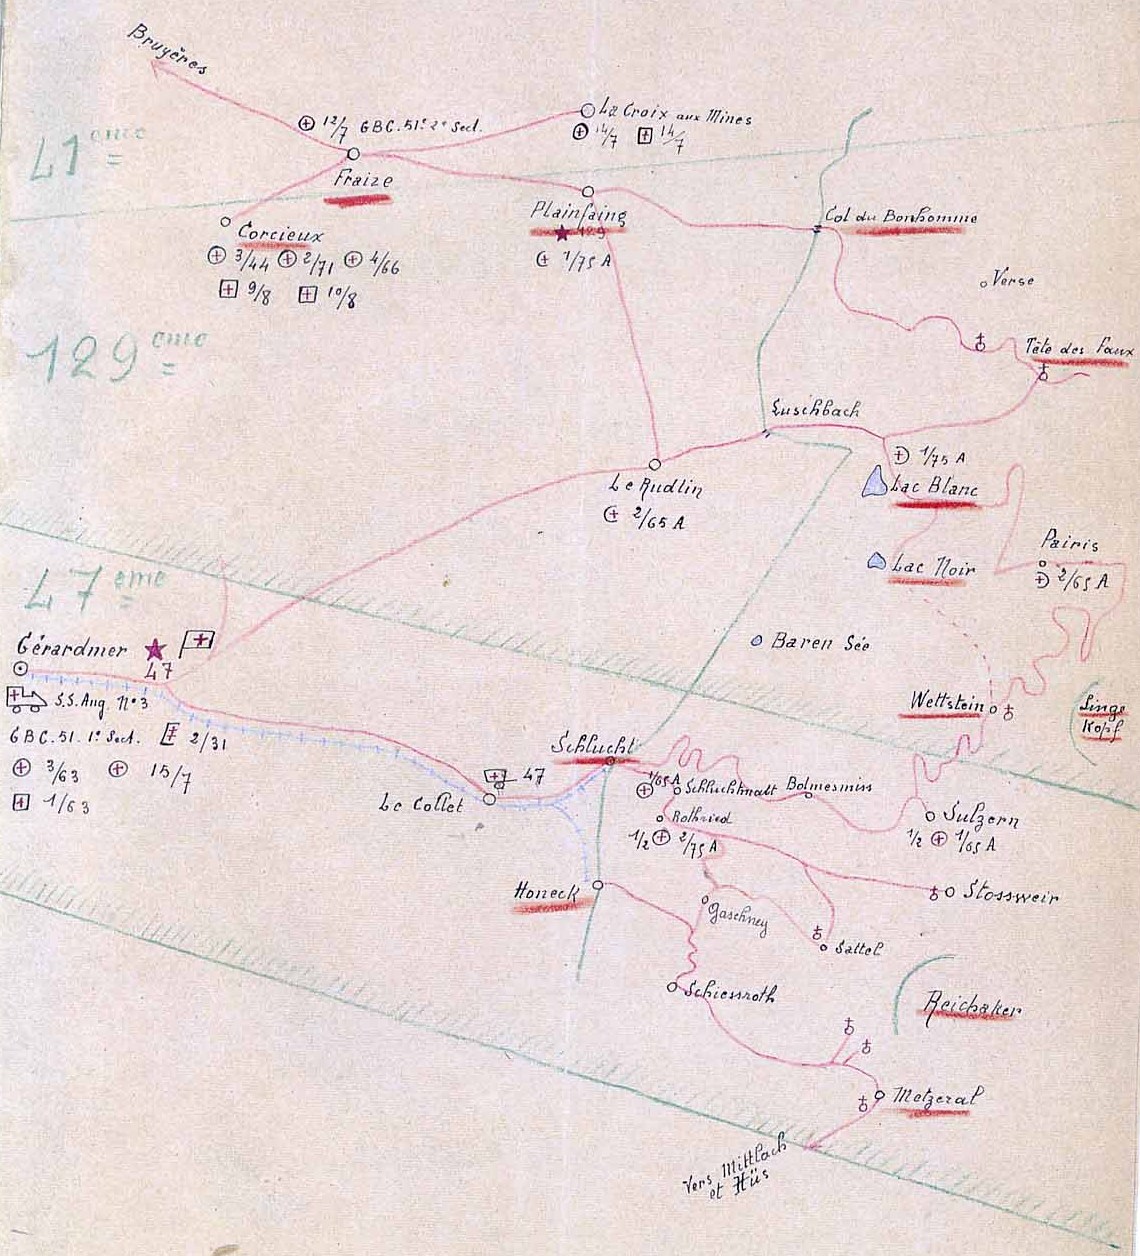 Bruyères
12/7 GBC. 51. 2e Sect.
La Croix aux Mines
14/7 14/7
41 eme
Fraize
Plainfaing
129
1/75 A
Corcieux
3/44 2/71 4/66
9/8 10/8
Col du Bonhomme
Verse
Tête des Faux
129 eme
Luschbach
1/75 A
Lac Blanc
Le Rudlin
2/65 A
Pairis
2/65 A
Lac Noir
47 eme
Gérardmer
47
S.S. Aug. N°3
GBC. 51. 1e Sect. 2/31
3/63 15/7
1/63
Baren Sée
Wettstein
Linge
Kopf
Schlucht
47
Le Collet
1/65 A
Schluchtmatt
Bolmesmiss
Rothried
1/2 2/75 A
Sulzern
1/2 1/65 A
Honeck
Stossweir
Gaschney
Sattel
Schiessroth
Reichaker
Metzeral
Vers Mittlach
et Hüs